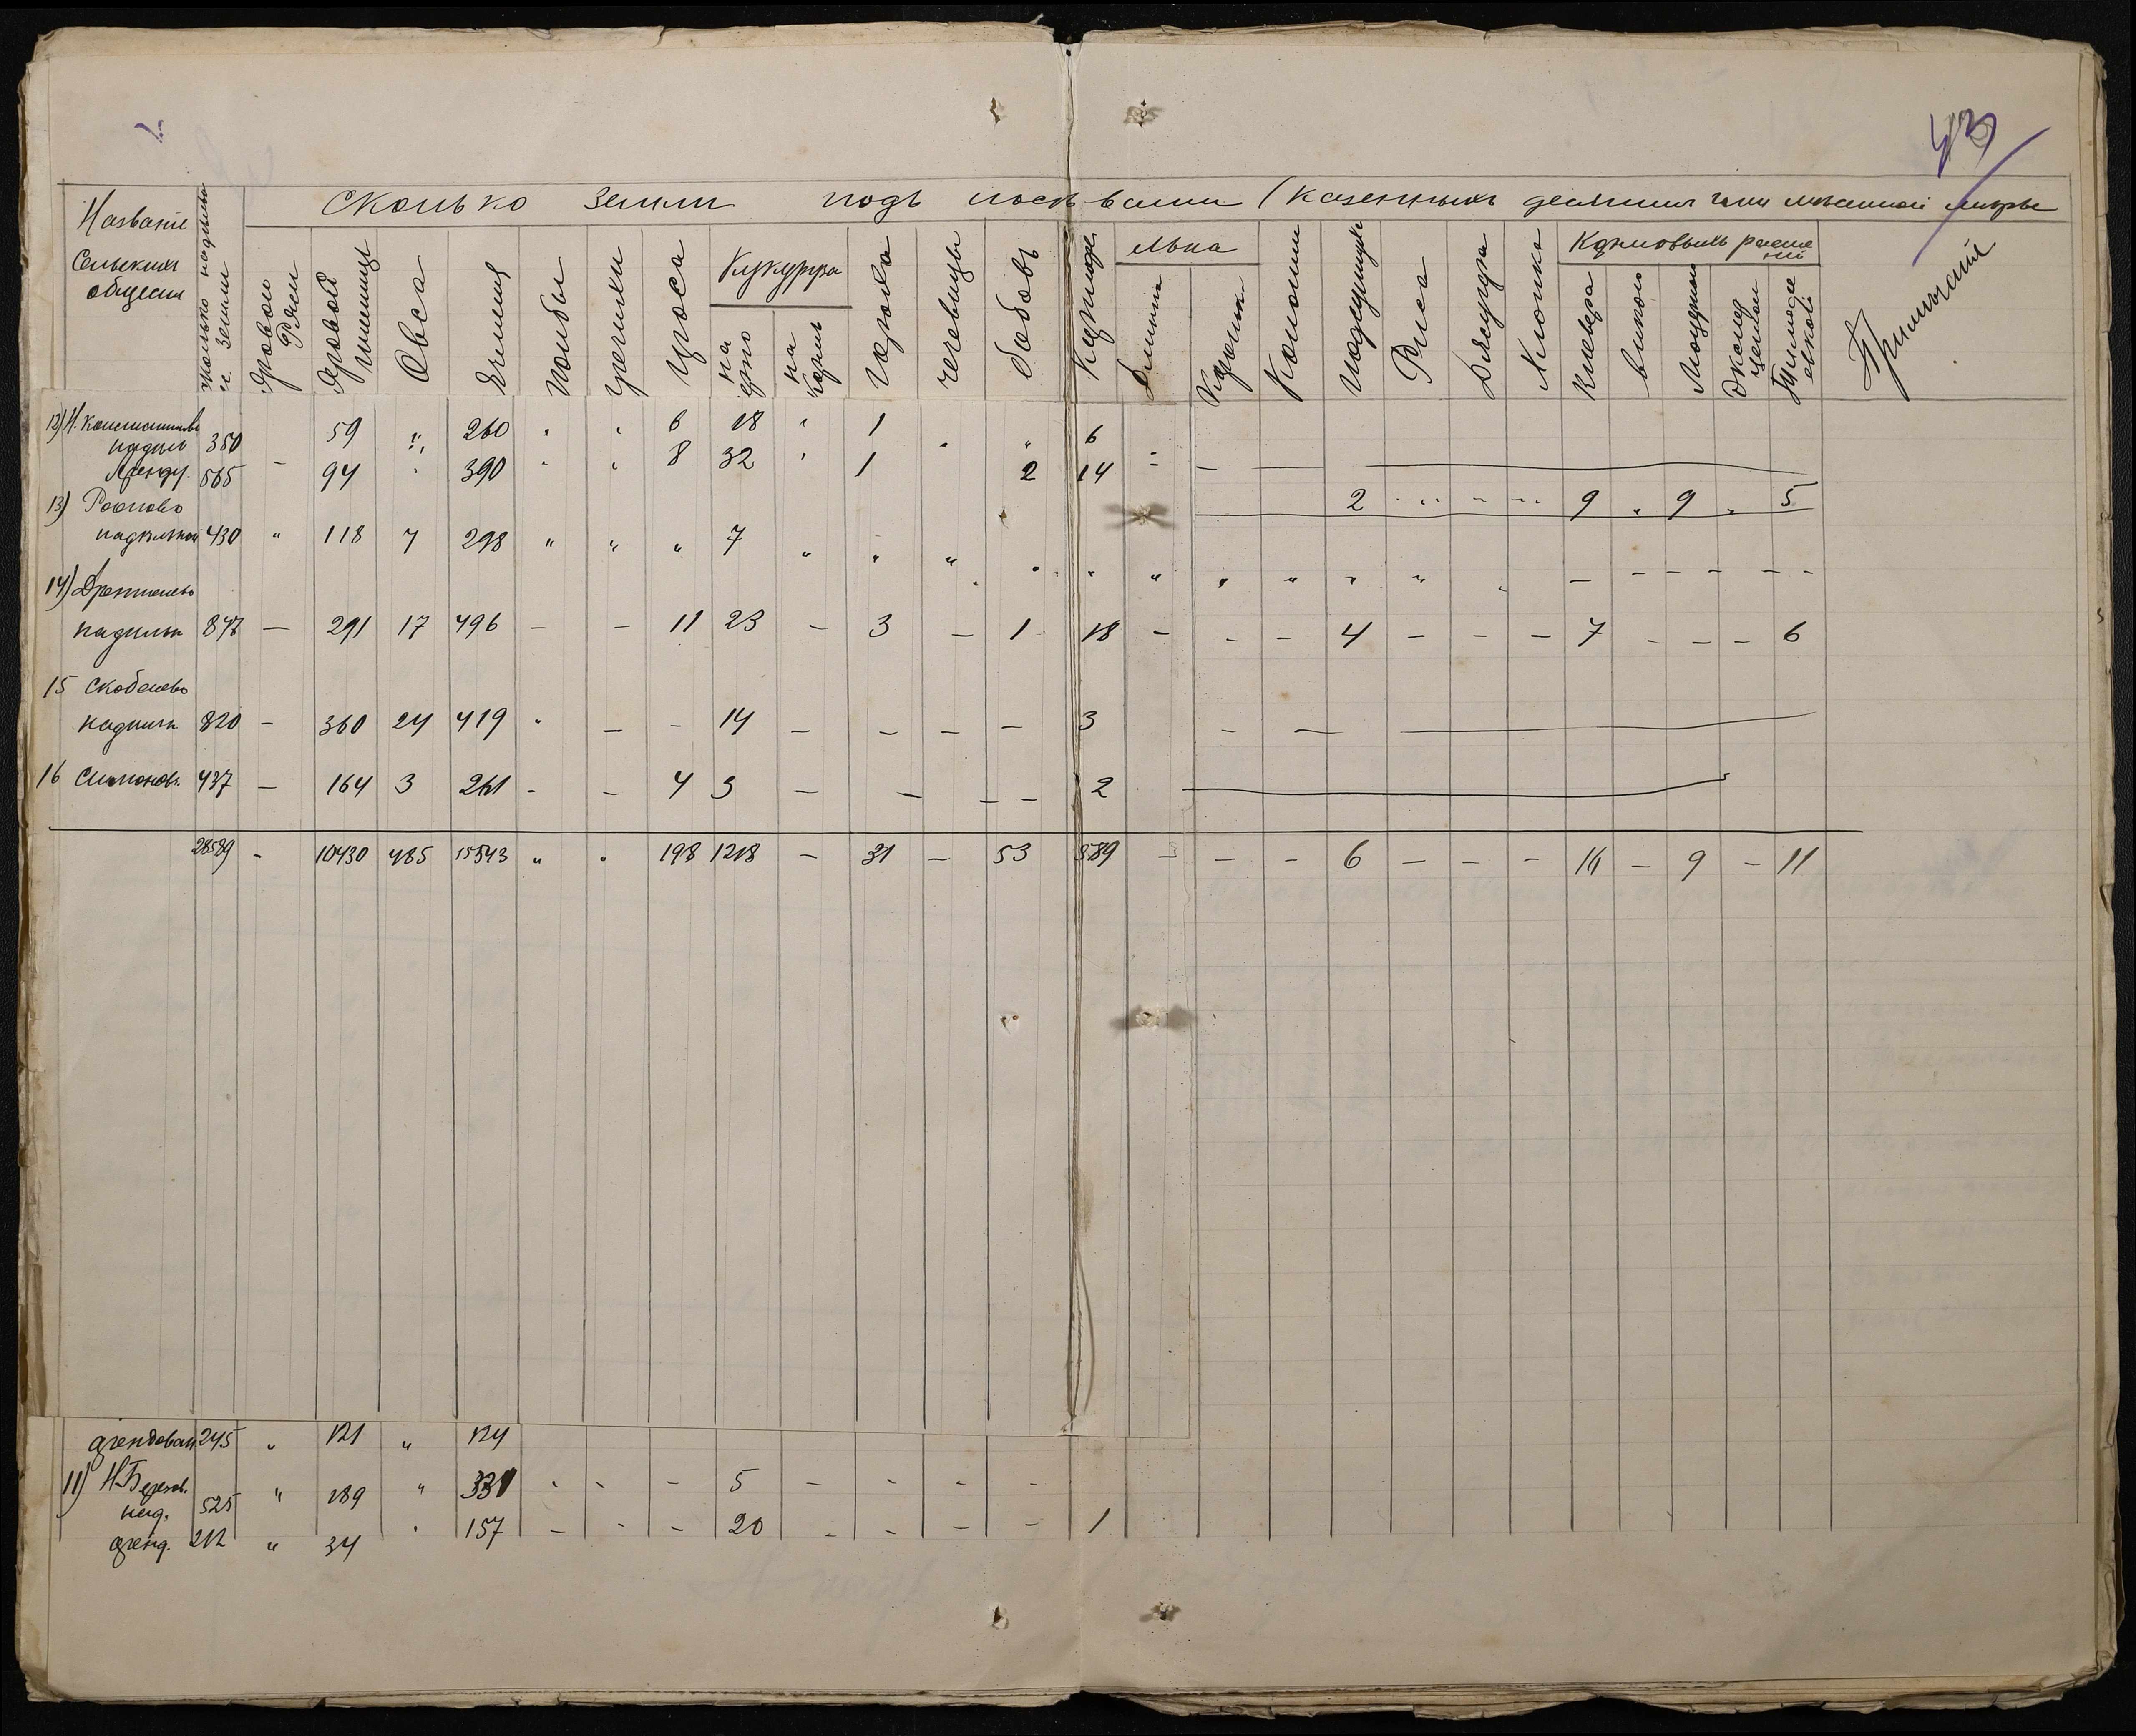 43
Название Сельскихъ обществ
Сколько надѣльн. земли
Сколько земли подъ посѣвами (казенныхъ десятинъ или мѣстной мѣры
Яровой Ржи
Яровой пшеницы
Овса
Ячменя
Полбы
Гречихи
Проса
Кукуруза
на зерно
на кормъ
Гороха
Чечевицы
Бобовъ
Картофеля
Льна
Конопли
Подсолнуха
Риса
Хлопка
Кормовыхъ расте ній
Клевера
Вики
Люцерны
Эспар цета
Примѣчаніе
12) Н. Константиновъ
надѣль 350 59 " 260 " " 6 18 " 1 " " 6
Аренду. 565 - 94 " 390 " " 8 32 " 1 2 14 - -
13) Роопово
2 9 " 9 " 5
надѣльной 430 " 118 7 298 " " " 7 " " " " " "
14)
надѣльн 847 - 291 17 496 - - 11 23 - 3 - 1 18 - - - 4 - - - 7 - - - 6
15 Скобелево
надѣльн 820 - 360 24 419 " - - 14 - - - - 3 - -
16 Симонов. 437 - 164 3 261 - - 4 3 - - - - 2
28589 - 10430 485 15543 " " 198 1218 - 31 - 53 589 - - - 6 - - - 16 - 9 - 11
арендован 245 " 121 " 124
11) Н Березов.
над. 525 " 189 " 331 - - - 5 - - - -
аренд. 212 " 34 " 157 - - - 20 - - - - 1